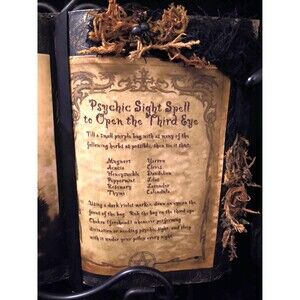 Psychic Sight Spell
to Open the Third Eye
Fill a small purple bag with as many of the
following herbs as possible, then tie it shut:
Mugwort Yarrow
Acacia
Honeysuckle Dandelion
Peppermint Lilac
Rosemary Lavender
Thyme Calendula
Using a dark violet marker, draw an eye on the
front of the bag. Rub the bag on the third eye
Chakra (forehead) whenever performing
divination or needing psychic sight, and sleep
with it under your pillow every night.